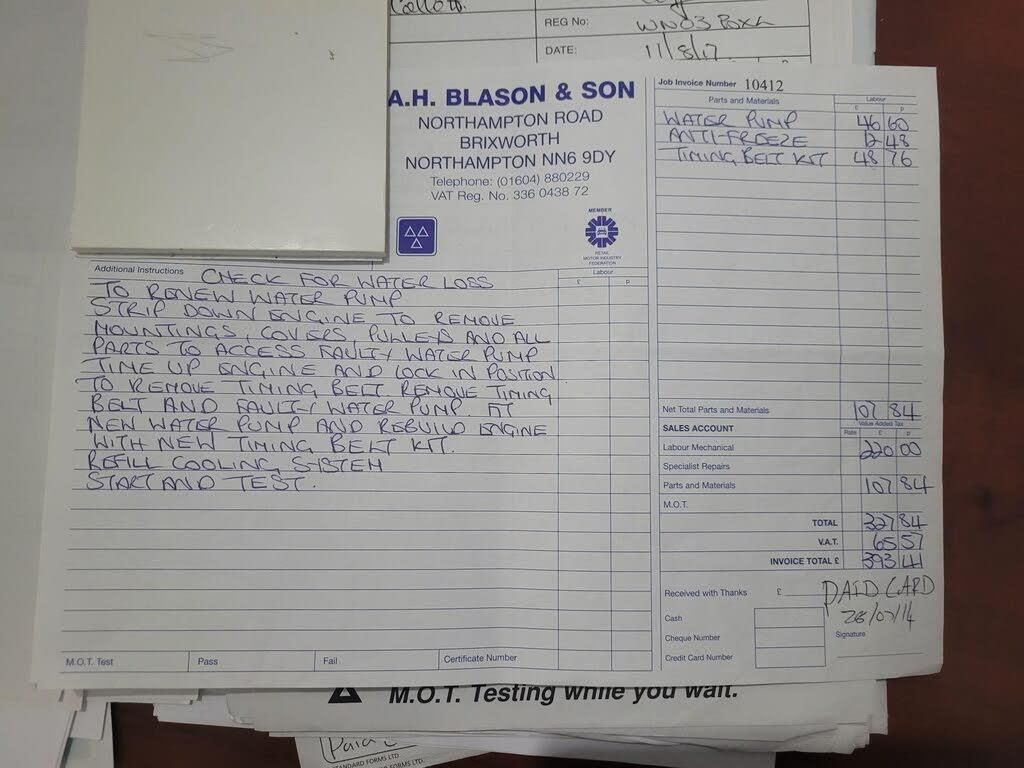 REG No: WN03
DATE: 11/8/17
A.H. BLASON & SON
NORTHAMPTON ROAD
BRIXWORTH
NORTHAMPTON NN6 9DY
Telephone: (01604) 880229
VAT Reg. No. 336 0438 72
MEMBER
RETAIL
MOTOR INDUSTRY
FEDERATION
Additional Instructions CHECK FOR WATER LOSS
Labour
£ p
TO RENEW WATER PUMP
STRIP DOWN ENGINE TO REMOVE
MOUNTINGS, COVERS, PULLEYS AND ALL
PARTS TO ACCESS FAULTY WATER PUMP
TIME UP ENGINE AND LOCK IN POSITION
TO REMOVE TIMING BELT. REMOVE TIMING
BELT AND FAULTY WATER PUMP. FIT
NEW WATER PUMP AND REBUILD ENGINE
WITH NEW TIMING BELT KIT.
REFILL COOLING SYSTEM
START AND TEST.
M.O.T. Test Pass Fail Certificate Number
Job Invoice Number 10412
Parts and Materials Labour
£ p
WATER PUMP 46 60
ANTI-FREEZE 12 48
TIMING BELT KIT 48 76
Net Total Parts and Materials 107 84
SALES ACCOUNT Value Added Tax
Rate £ p
Labour Mechanical 220 00
Specialist Repairs
Parts and Materials 107 84
M.O.T.
TOTAL 327 84
V.A.T. 65 57
INVOICE TOTAL £ 393 41
Received with Thanks £ PAID CARD
Cash 28/07/14
Signature
Cheque Number
Credit Card Number
M.O.T. Testing while you wait.
Paid
STANDARD FORMS LTD
FORMS LTD.